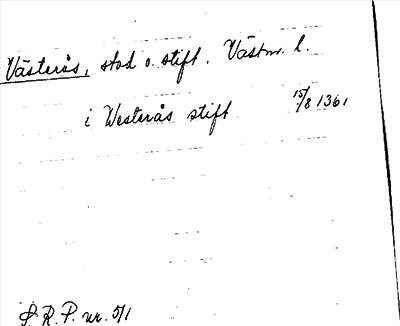 Västerås, stad o. stift. Västm. l.
i Westerås stift 15/8 1361
S.R.P. nr. 571